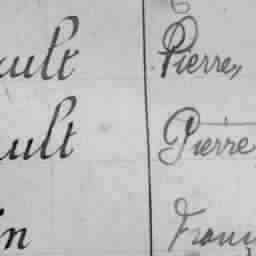 ault Pierre,
ult Pierre
in Franç